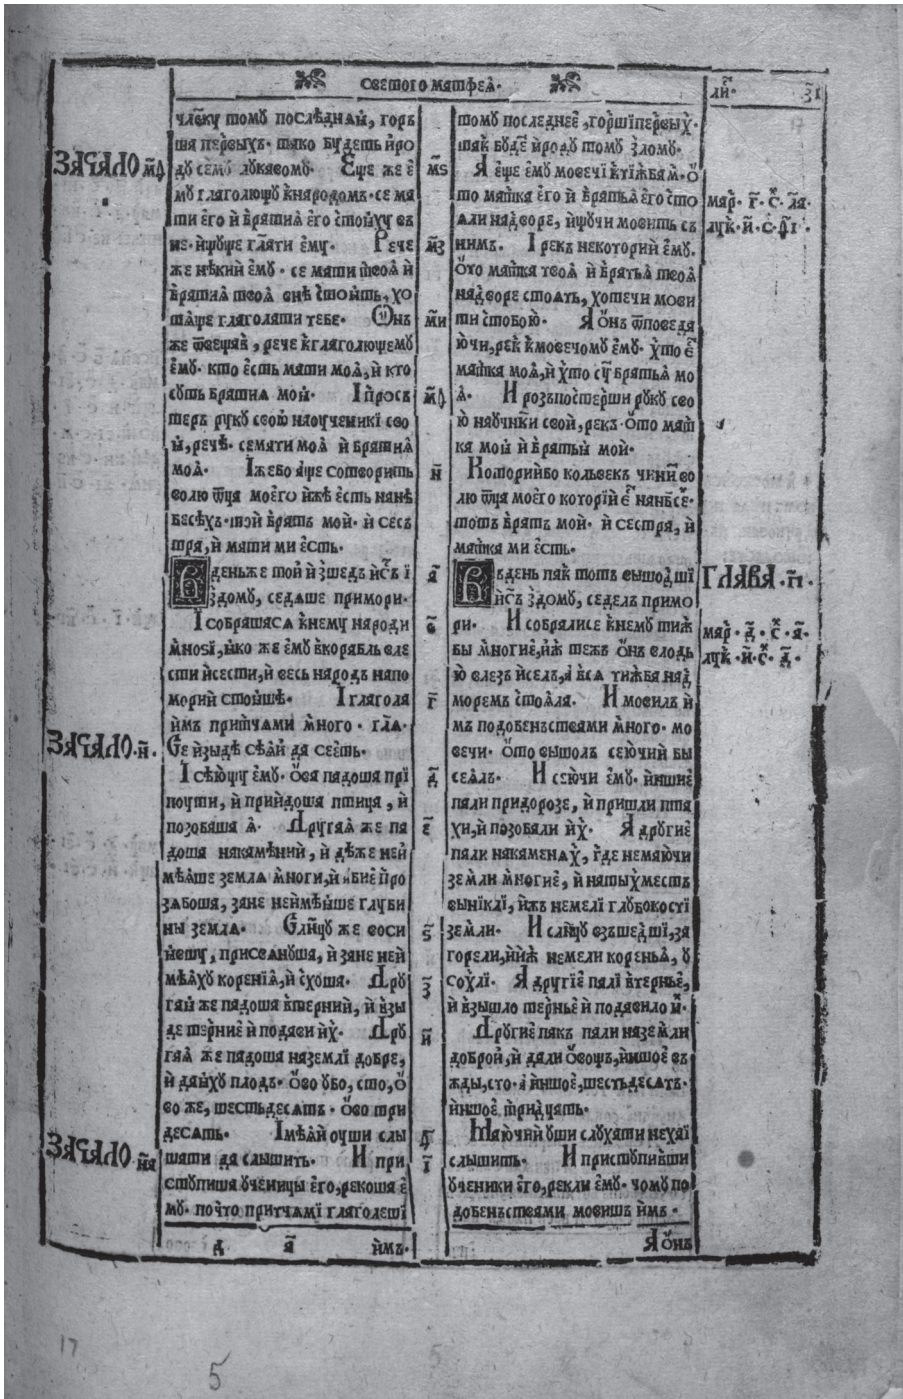 светого матфеа·
ли҃·
з҃і
члв҃ку тому послѣднаꙗ, горъ
ша первыхъ· тако будеть и҆ро
ЗАЧАЛО м҃д
ду сему лукавому· Еще же е҆
му глаголющу кнародомъ· се ма
ти его и҆ братиа его стоꙗху въ
не· и҆щуще гл҃ати ему· Рече
же нѣкий ему· се мати твоа и҆
братиа твоа внѣ стоꙗть, хо
тѧще глаголати тебе· Ѡнъ
же ѿвещавъ, рече кглаголющему
ему· кто есть мати моа, и҆ кто
суть братиа мои· І простъ
теръ руку свою наученики сво
ꙗ, рече· семати моа и҆ братиа
моа· Іжебо аще сотворить
волю ѿца моего иже есть нанѣ
бесѣхъ· той братъ мой· и҆ сес
тра, и҆ мати ми есть·
Вденьже той и҆зшедъ іс҃ъ і
здому, седѧше примори·
І собрашасѧ кнему народи
мнози, ꙗко же ему вкорабль вле
сти исести, и҆ весь народъ напо
морий стоꙗше· І глагола
и҆мъ притчами много· гл҃а·
ЗАЧАЛО· н҃·
Се и҆зыде сѣꙗй да сеетъ·
І сѣющу ему· ѻва падоша прі
поути, и҆ приидоша птица, и҆
позобаша ꙗ· Другаа же па
доша накамѣний, и҆дѣже неи
мѣаше земла многи, и҆ абие про
зѧбоша, зане неимѣꙗше глуби
ны земла· Слн҃цу же воси
ꙗвшу, присвѧнуша, и҆ зане неи
мѣѧху корениа, и҆ схоша· Дру
гаꙗ же падоша втерний, и҆ взы
де терние и҆ подави и҆х· Дру
гаа же падоша наземлі добре,
и҆ даꙗху плодъ· ѻво убо, сто, ѻ
во же, шестьдесѧтъ· ѻво три
десѧть· Імѣꙗй оуши слы
шати да слышить· И при
ЗАЧАЛО· н҃а
ступиша ученицы его, рекоша е
му· почто притчамі глаголеші
д а҃ и҆мъ·
м҃ѕ
м҃з
м҃и
м҃ѳ
н҃
а҃
в҃
г҃
д҃
е҃
ѕ҃
з҃
и҃
ѳ҃
і҃
тому последнее, горшіпервых·
так буде и҆роду тому злому·
А еще ему мовечи ктижбам· ѻ
то матка его и҆ братьа его сто
ѧли надворе, и҆щучи мовить съ
нимъ· І рекъ некоторий ему·
ѻто матка твоа и҆ братьа твоа
надворе стоѧть, хотечи мови
ти стобою· А ѻнъ ѿповеда
ючи, рек кмовечому ему· хто е҆
матка моа, и҆ хто су братьа мо
а· И розъпостерши руку сво
ю научнки свой, рекъ· ѻто мат
ка моꙗ и҆ братьꙗ мои·
Которийбо кольвекъ чинит во
лю ѿца моего которій е нанб҃се·
тотъ братъ мой· и҆ сестра, и҆
матка ми есть·
Въдень пак тотъ вышодші
іс҃ъ здому, седелъ примо
ри· И собралисе кнему тиж
бы многие, иж тежъ ѻнъ влодь
ю влезъ иселъ, а вса тижба над
моремъ стоѧла· И мовилъ и҆
мъ подобеньствами много· мо
вечи· ѻто вышолъ сеючий бы
сеѧлъ· И сеючи ему· и҆ншие
пали придорозе, и҆ пришли пта
хи, и҆ позобали и҆х· А другие
пали накаменѧх, где немаючи
земли многие, и҆ натыхместъ
выниклі, и҆жъ немелі глубокості
земли· И слн҃цу взъшедші, за
горели, и҆иж немели кореньа, у
сохлі· А другіе палі втернье,
и҆ взышло тернье и҆ подавило и҆х·
Другие пакъ пали наземли
доброй, и҆ дали ѻвощъ, и҆ншое въ
жды, сто· а и҆ншое, шестьдесѧтъ·
и҆ншое тридцать·
Маючий уши слухати нехаі
слышить· И приступивши
ученики его, рекли ему· чому по
добеньствами мовишъ и҆мъ·
А ѻнъ
мар· г҃· с· л҃а·
лук· и҃· с· д҃і·
ГЛАВА· г҃і·
мар· д҃· с· а҃·
лук· и҃· с· д҃·
17
5